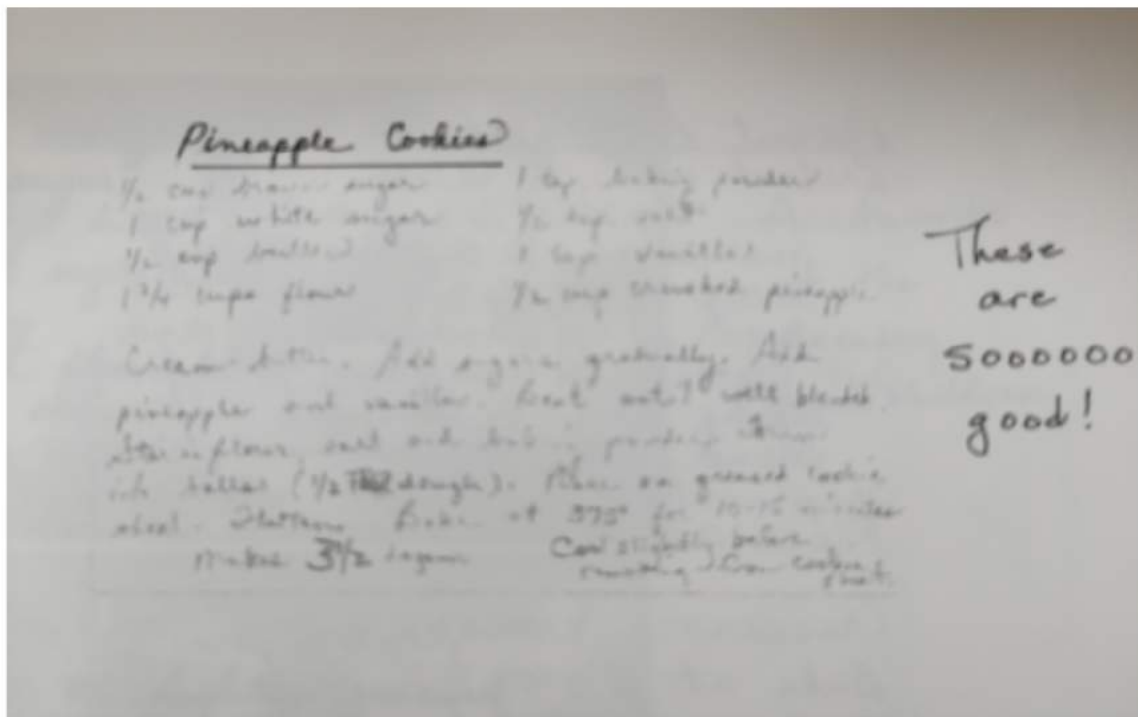 Pineapple Cookies
½ cup brown sugar
1 cup white sugar
½ cup butter
1 ¾ cups flour
1 tsp baking powder
½ tsp salt
1 tsp vanilla
½ cup crushed pineapple
Cream butter. Add sugars gradually. Add
pineapple and vanilla. Beat until well blended.
flour, salt and baking powder.
balls (½ dough). Place on greased cookie
sheet. Flatten. Bake at 375° for minutes
Makes 3½ dozen
Cool slightly before
removing from cookie
sheet.
These
are
sooooooo
good!